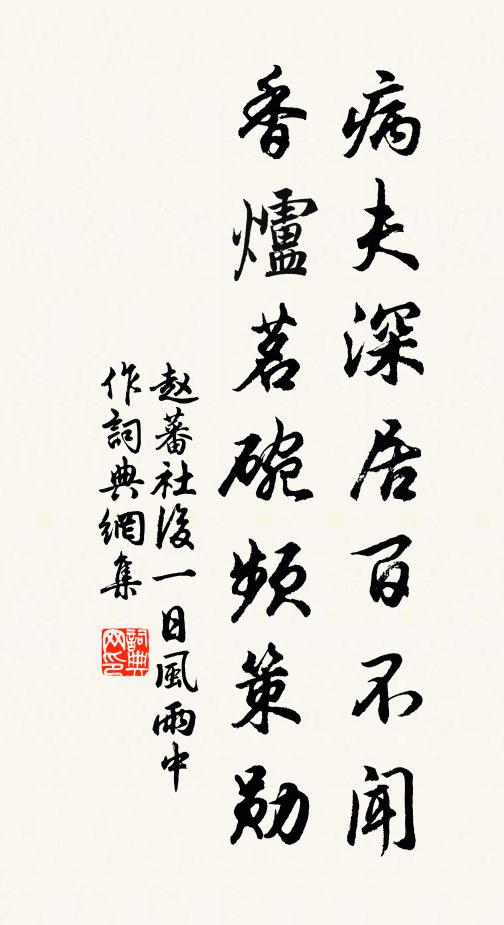 病夫深居百不闻
香爐茗碗频策勋
赵蕃社後一日風雨中
作詞典網集
詞典网印